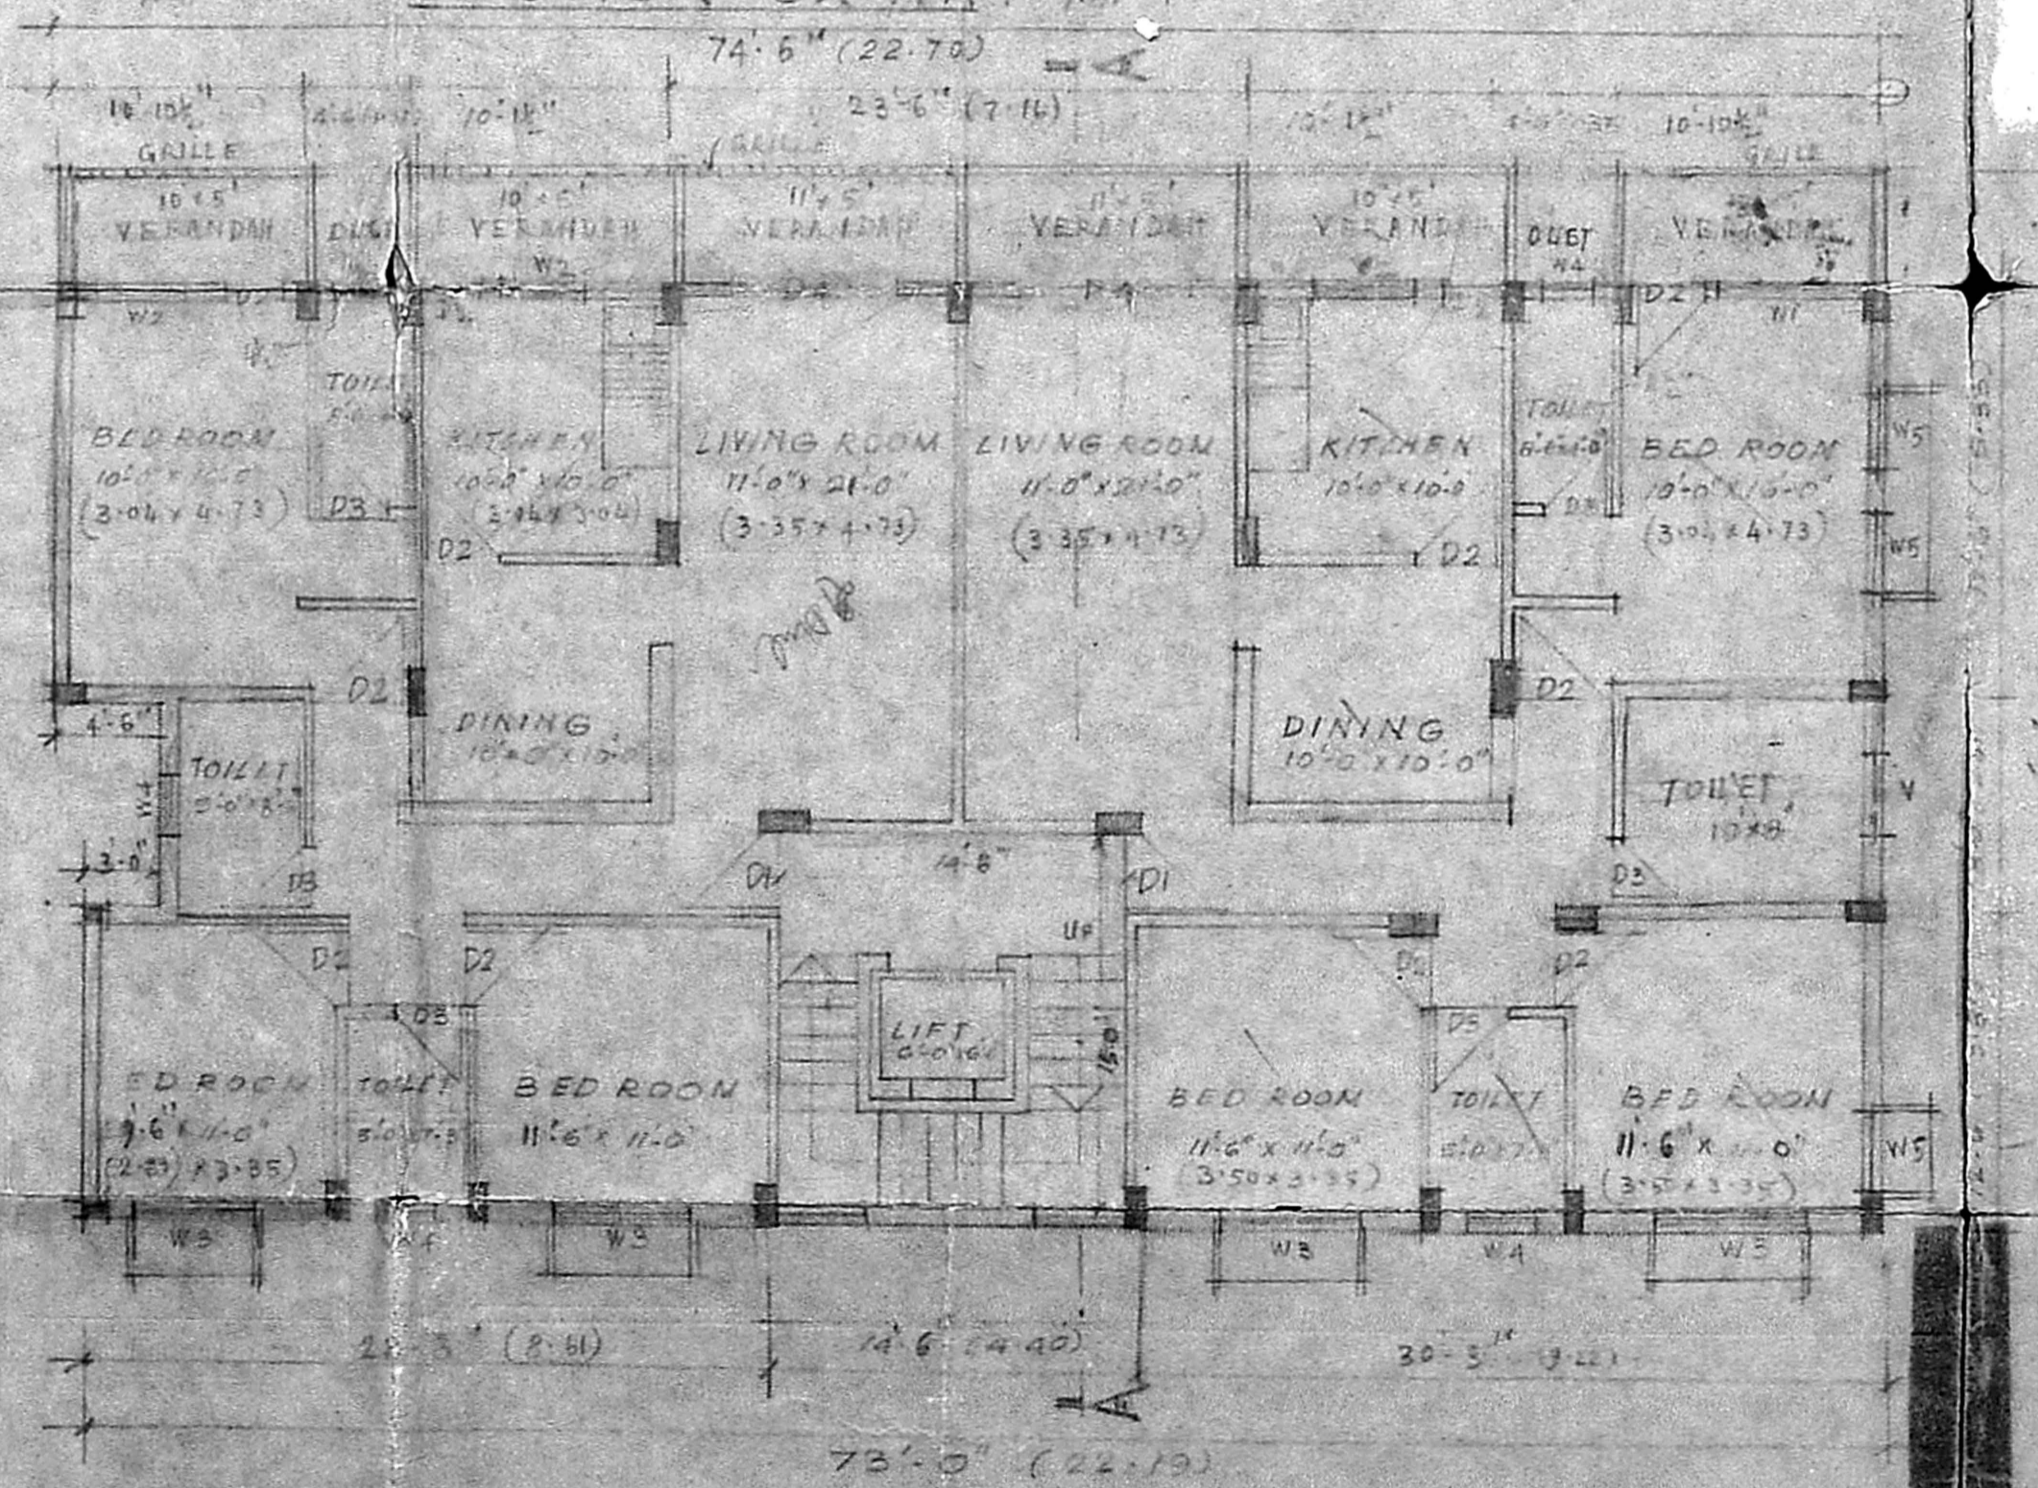 74'-6" (22.70)
A
10'-10½"
10'-1½"
23'-6" (7.16)
10'-1½"
10'-10½"
GRILLE
GRILLE
GRILLE
10'x5'
VERANDAH
DUCT
10'x5'
VERANDAH
W2
11'x5'
VERANDAH
11'x5'
VERANDAH
10'x5'
VERANDAH
DUCT
W4
D2
W2
D2
D4
D4
D2
W1
TOILET
BED ROOM
10'-0" x 16'-0"
(3.04 x 4.73)
D3
KITCHEN
10'-0" x 10'-0"
(3.04 x 3.04)
D2
LIVING ROOM
11'-0" x 21'-0"
(3.35 x 4.73)
LIVING ROOM
11'-0" x 21'-0"
(3.35 x 4.73)
KITCHEN
10'-0" x 10'-0
D2
TOILET
D3
BED ROOM
10'-0" x 16'-0"
(3.04 x 4.73)
W5
W5
4'-6"
D2
DINING
10'-0" x 10'-0
DINING
10'-0" x 10'-0"
D2
TOILET
W4
3'-0"
D3
TOILET
10'x8'
V
D3
D1
14'-8"
D1
D2
D2
UP
D2
D2
D3
D3
LIFT
15'-0"
ED ROOM
9'-6" x 11'-0"
(2.89) x 3.35)
TOILET
BED ROOM
11'-6" x 11'-0"
BED ROOM
11'-6" x 11'-0"
(3.50 x 3.35)
TOILET
BED ROOM
11'-6" x 11'-0"
(3.50 x 3.35)
W5
W3
W3
W3
W4
W3
(8.61)
14'-6" (4.40)
30'-3" (9.22)
A
73'-0" (22.19)